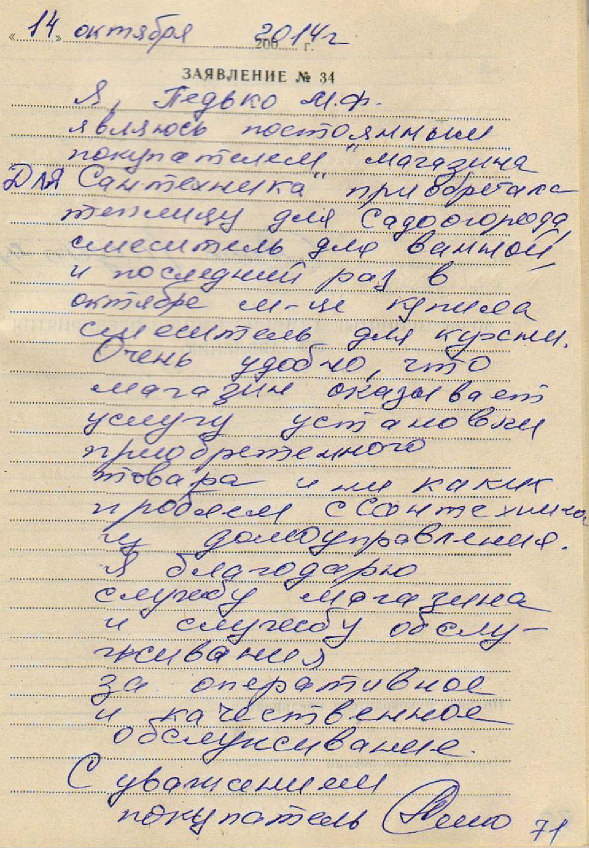 «14» октября 2014 г
200 г.
ЗАЯВЛЕНИЕ № 34
Я, Педько М.Ф.
являюсь постоянным
покупателем "магазина
Для Сантехника" приобретала
теплицу для Садоогорода,
смеситель для ванной,
и последний раз в
октябре м-це купила
смеситель для кухни.
Очень удобно, что
магазин оказывает
услугу установки
приобретенного
товара и ни каких
проблем с Сантехника
из домоуправления.
Я благодарю
службу магазина
и службу обслу-
живания
за оперативное
и качественное
обслуживание.
С уважением
покупатель
71